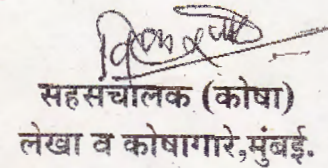 सहसंचालक (कोषा)
लेखा व कोषागारे,मुंबई.